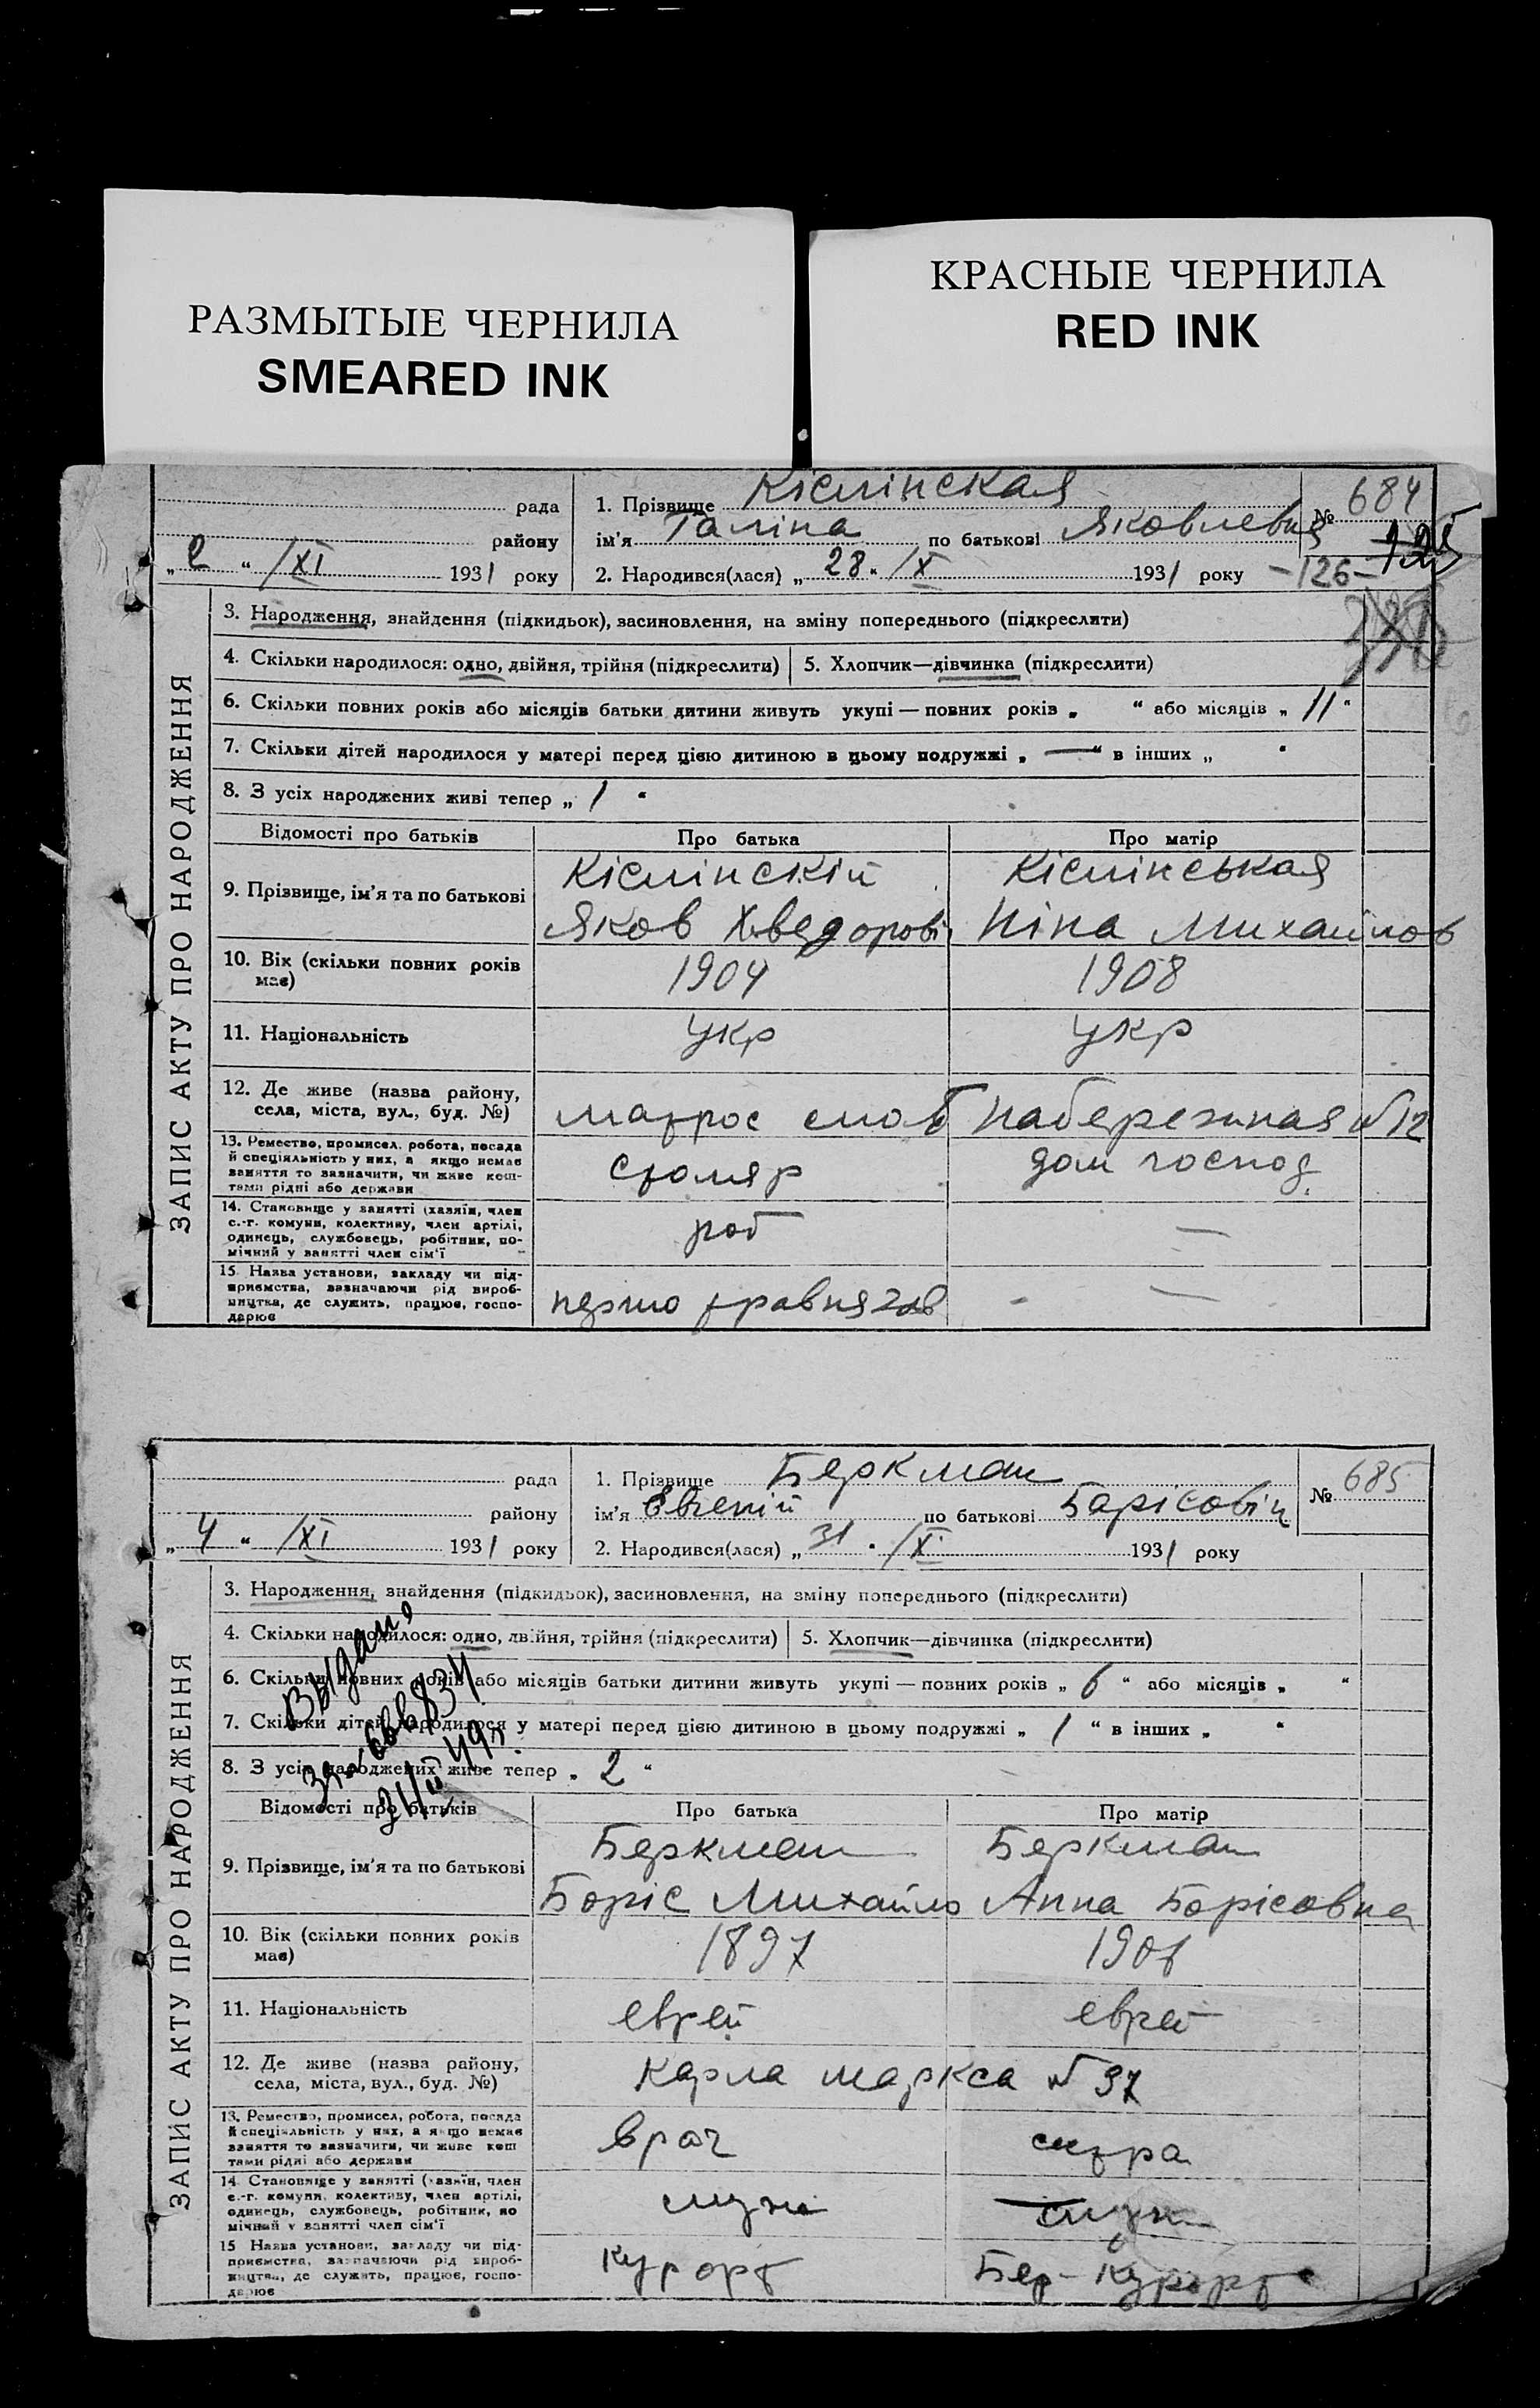 РАЗМЫТЫЕ ЧЕРНИЛА
SMEARED INK
КРАСНЫЕ ЧЕРНИЛА
RED INK
рада
району
„ 2 “ /XI 1931 року
1. Прізвище Кіслінская
ім'я Галіна по батькові Яковлевна
2. Народився(лася) „ 28 “ /X 1931 року
№ 684
125
-126-
ЗАПИС АКТУ ПРО НАРОДЖЕННЯ
3. Народження, знайдення (підкидьок), засиновлення, на зміну попереднього (підкреслити)
4. Скільки народилося: одно, двійня, трійня (підкреслити) 5. Хлопчик—дівчинка (підкреслити)
6. Скільки повних років або місяців батьки дитини живуть укупі — повних років „ “ або місяців „ 11 “
7. Скільки дітей народилося у матері перед цією дитиною в цьому подружжі „ — “ в інших „ “
8. З усіх народжених живі тепер „ 1 “
Відомості про батьків Про батька Про матір
9. Прізвище, ім'я та по батькові Кіслінскій Кіслінськая
Яков Хведорові Ніна Михайлов
10. Вік (скільки повних років має) 1904 1908
11. Національність укр укр
12. Де живе (назва району, села, міста, вул., буд. №) матрос слоб Набережная №12
13. Ремество, промисел, робота, посада й спеціяльність у них, а якщо немає заняття то зазначити, чи живе коштами рідні або держави столяр дом господ.
14. Становище у занятті (хазяїн, член с.-г. комуни, колективу, член артілі, одинець, службовець, робітник, помічний у занятті член сім'ї роб —
15. Назва установи, закладу чи підприємства, зазначаючи рід виробництва, де служить, працює, господарює —
рада
району
„ 4 “ /XI 1931 року
1. Прізвище Беркман
ім'я Євгеній по батькові Барісовіч
2. Народився(лася) „ 31 “ /X 1931 року
№ 685
ЗАПИС АКТУ ПРО НАРОДЖЕННЯ
3. Народження, знайдення (підкидьок), засиновлення, на зміну попереднього (підкреслити)
4. Скільки народилося: одно, двійня, трійня (підкреслити) 5. Хлопчик—дівчинка (підкреслити)
6. Скільки повних років або місяців батьки дитини живуть укупі — повних років „ 6 “ або місяців „ “
7. Скільки дітей народилося у матері перед цією дитиною в цьому подружжі „ 1 “ в інших „ “
8. З усіх народжених живе тепер „ 2 “
Відомості про батьків Про батька Про матір
9. Прізвище, ім'я та по батькові Беркман Беркман
Боріс Михайло Анна Борісовна
10. Вік (скільки повних років має) 1897 1906
11. Національність еврей еврей
12. Де живе (назва району, села, міста, вул., буд. №) Карла Маркса № 37
13. Ремество, промисел, робота, посада й спеціяльність у них, а якщо немає заняття то зазначити, чи живе коштами рідні або держави врач
14. Становище у занятті (хазяїн, член с.-г. комуни, колективу, член артілі, одинець, службовець, робітник, помічний у занятті член сім'ї служ служ
15 Назва установи, закладу чи підприємства, зазначаючи рід виробництва, де служить, працює, господарює Курорт Бер-Курорт